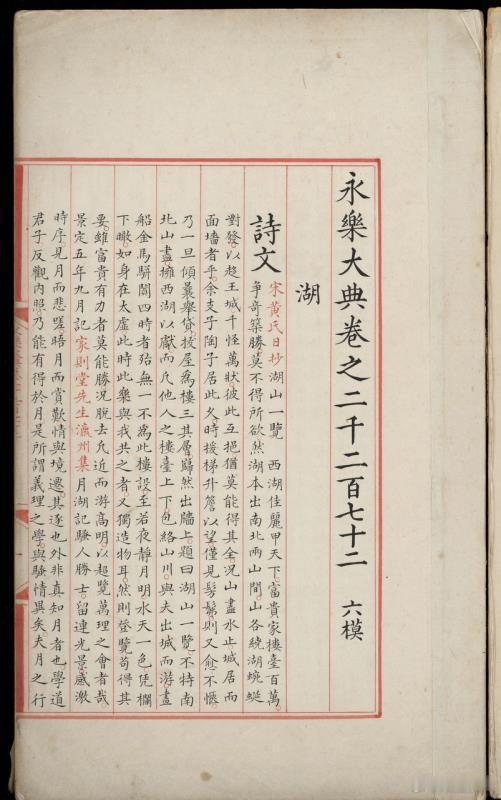 永樂大典卷之二千二百七十二 六模
湖
詩文
宋黃氏日抄湖山一覽 西湖佳麗甲天下富貴家樓臺百萬
爭奇築勝莫不得所欲然湖本出南北兩山間山各繞湖蜿蜒
對發以趍王城千怪萬狀彼此互挹猶莫能得其全況山盡水止城居而
面墻者乎余支子陶子居此久時援梯升簷以望僅見髣髴則又愈不愜
乃一旦傾囊舉貸拔屋爲樓三其層巋然出牆上題曰湖山一覽不特南
北山盡擁西湖以獻而凡他人之樓臺上下包絡山川與夫出城而游畫
船金馬駢闐四時者殆無一不爲此樓設至若夜靜月明水天一色凭欄
下瞰如身在太虛此時此樂與我共之者又獨造物耳然則登覽苟得其
要雖富貴有力者莫能勝況脫去凡近而游高明以超覽萬理之會者哉
景定五年九月記家則堂先生瀛州集月湖記騷人勝士留連光景感激
時序見月而悲嗟晤月而賞歎情與境遷其逐也外非真知月者也學道
君子反觀內照乃能有得於月是所謂義理之學與騷情異矣夫月之行